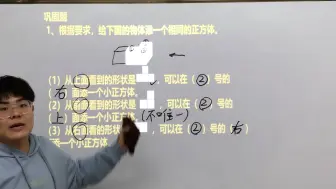 巩固题
1、根据要求，给下面的物体添一个相同的正方体。
(1) 从上面看到的形状是，可以在（②）号的
（右）面添一个小正方体。
(2) 从前面看到的形状是，可以在（②）号的
（上）面添一个小正方体。(不唯一)
(3) 从右面看的形状，可以在（②）号的（右）
添一个小正方体